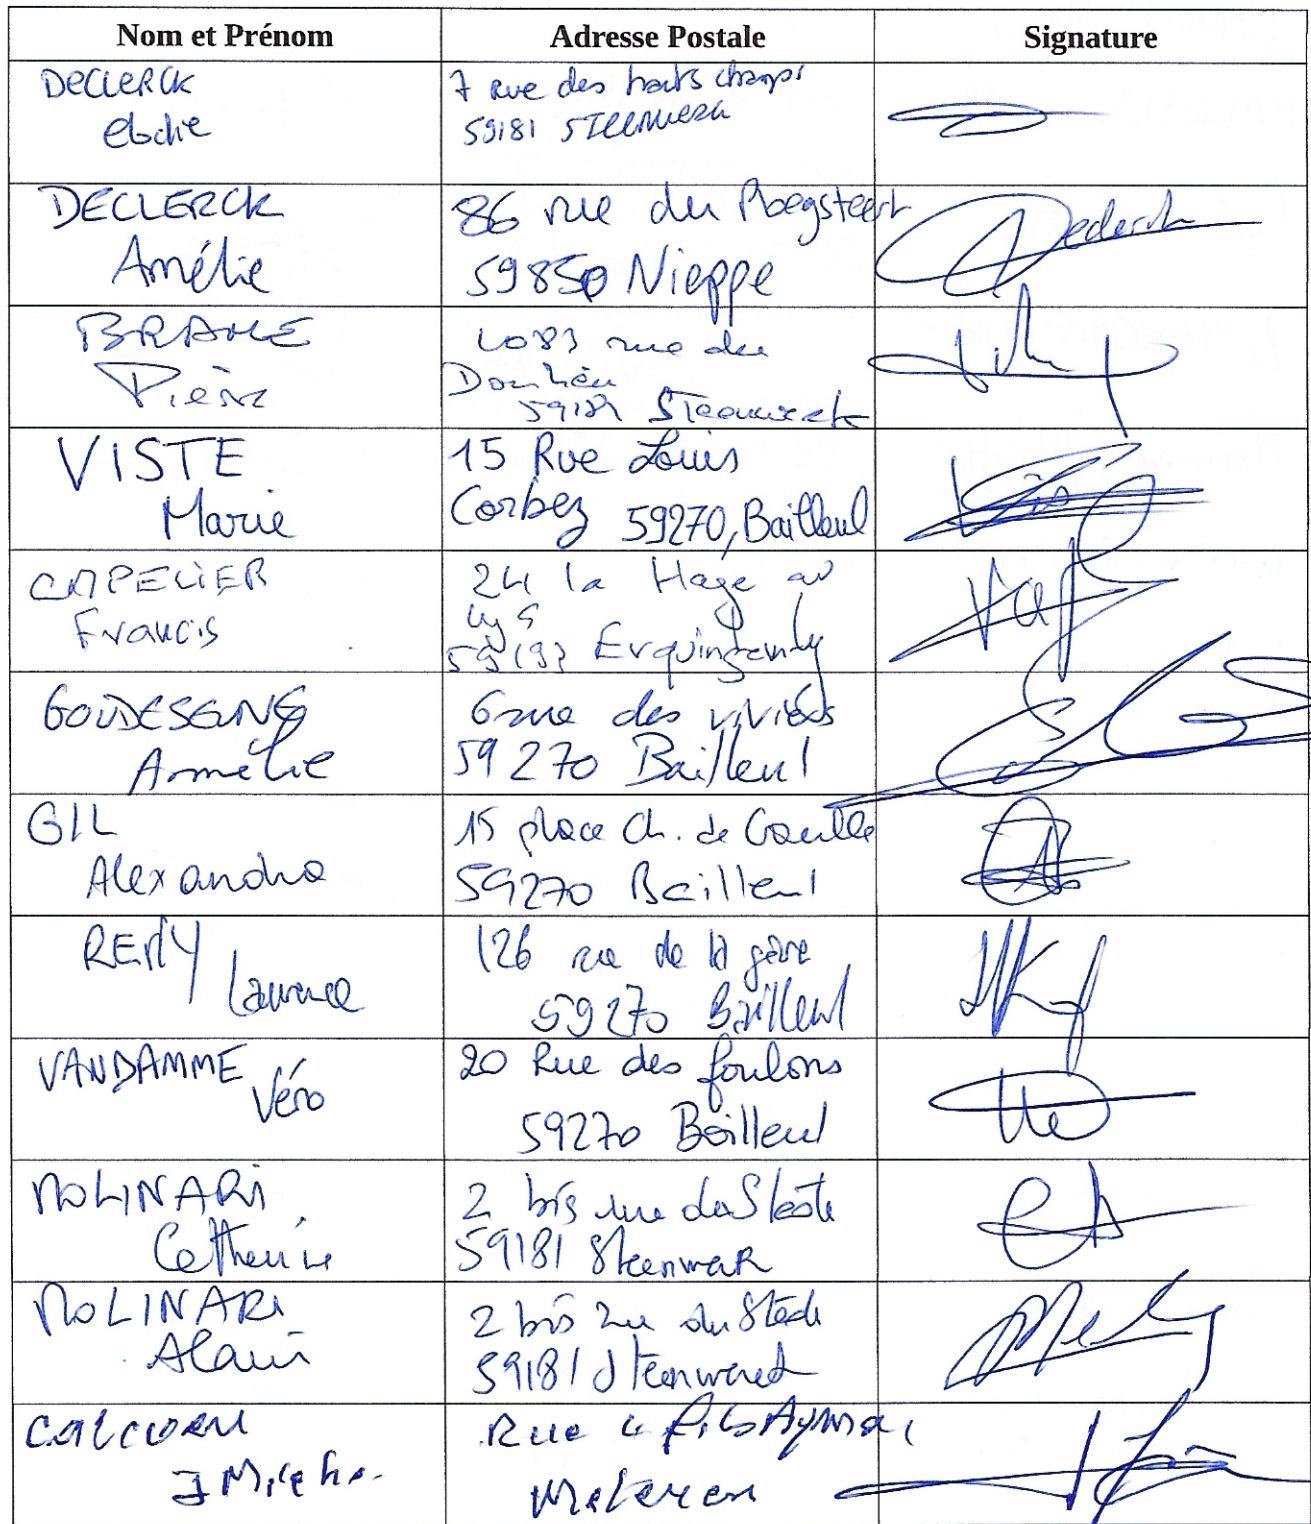 Nom et Prénom
Adresse Postale
Signature
DECLERCK
elodie
7 rue des hauts champs
59181 STEENWERCK
DECLERCK
Amélie
86 rue du Ploegsteert
59850 Nieppe
Declerck
BRAME
Pierre
1083 rue du
Doulieu
59181 Steenwerck
VISTE
Marie
15 Rue Louis
Corbez 59270, Bailleul
CAPELIER
Francis
24 la Hage au
lys
59193 Erquinghem
GOUDESEUNE
Amélie
6 rue des viviers
59270 Bailleul
GIL
Alexandra
15 place Ch. de Gaulle
59270 Bailleul
REMY
Laurence
126 rue de la gare
59270 Bailleul
VANDAMME
Véro
20 Rue des foulons
59270 Bailleul
MOLINARI
Catherine
2 bis rue du
59181 Steenwerck
MOLINARI
Alain
2 bis rue du
59181 Steenwerck
Rue 4 fils Aymon
Meteren